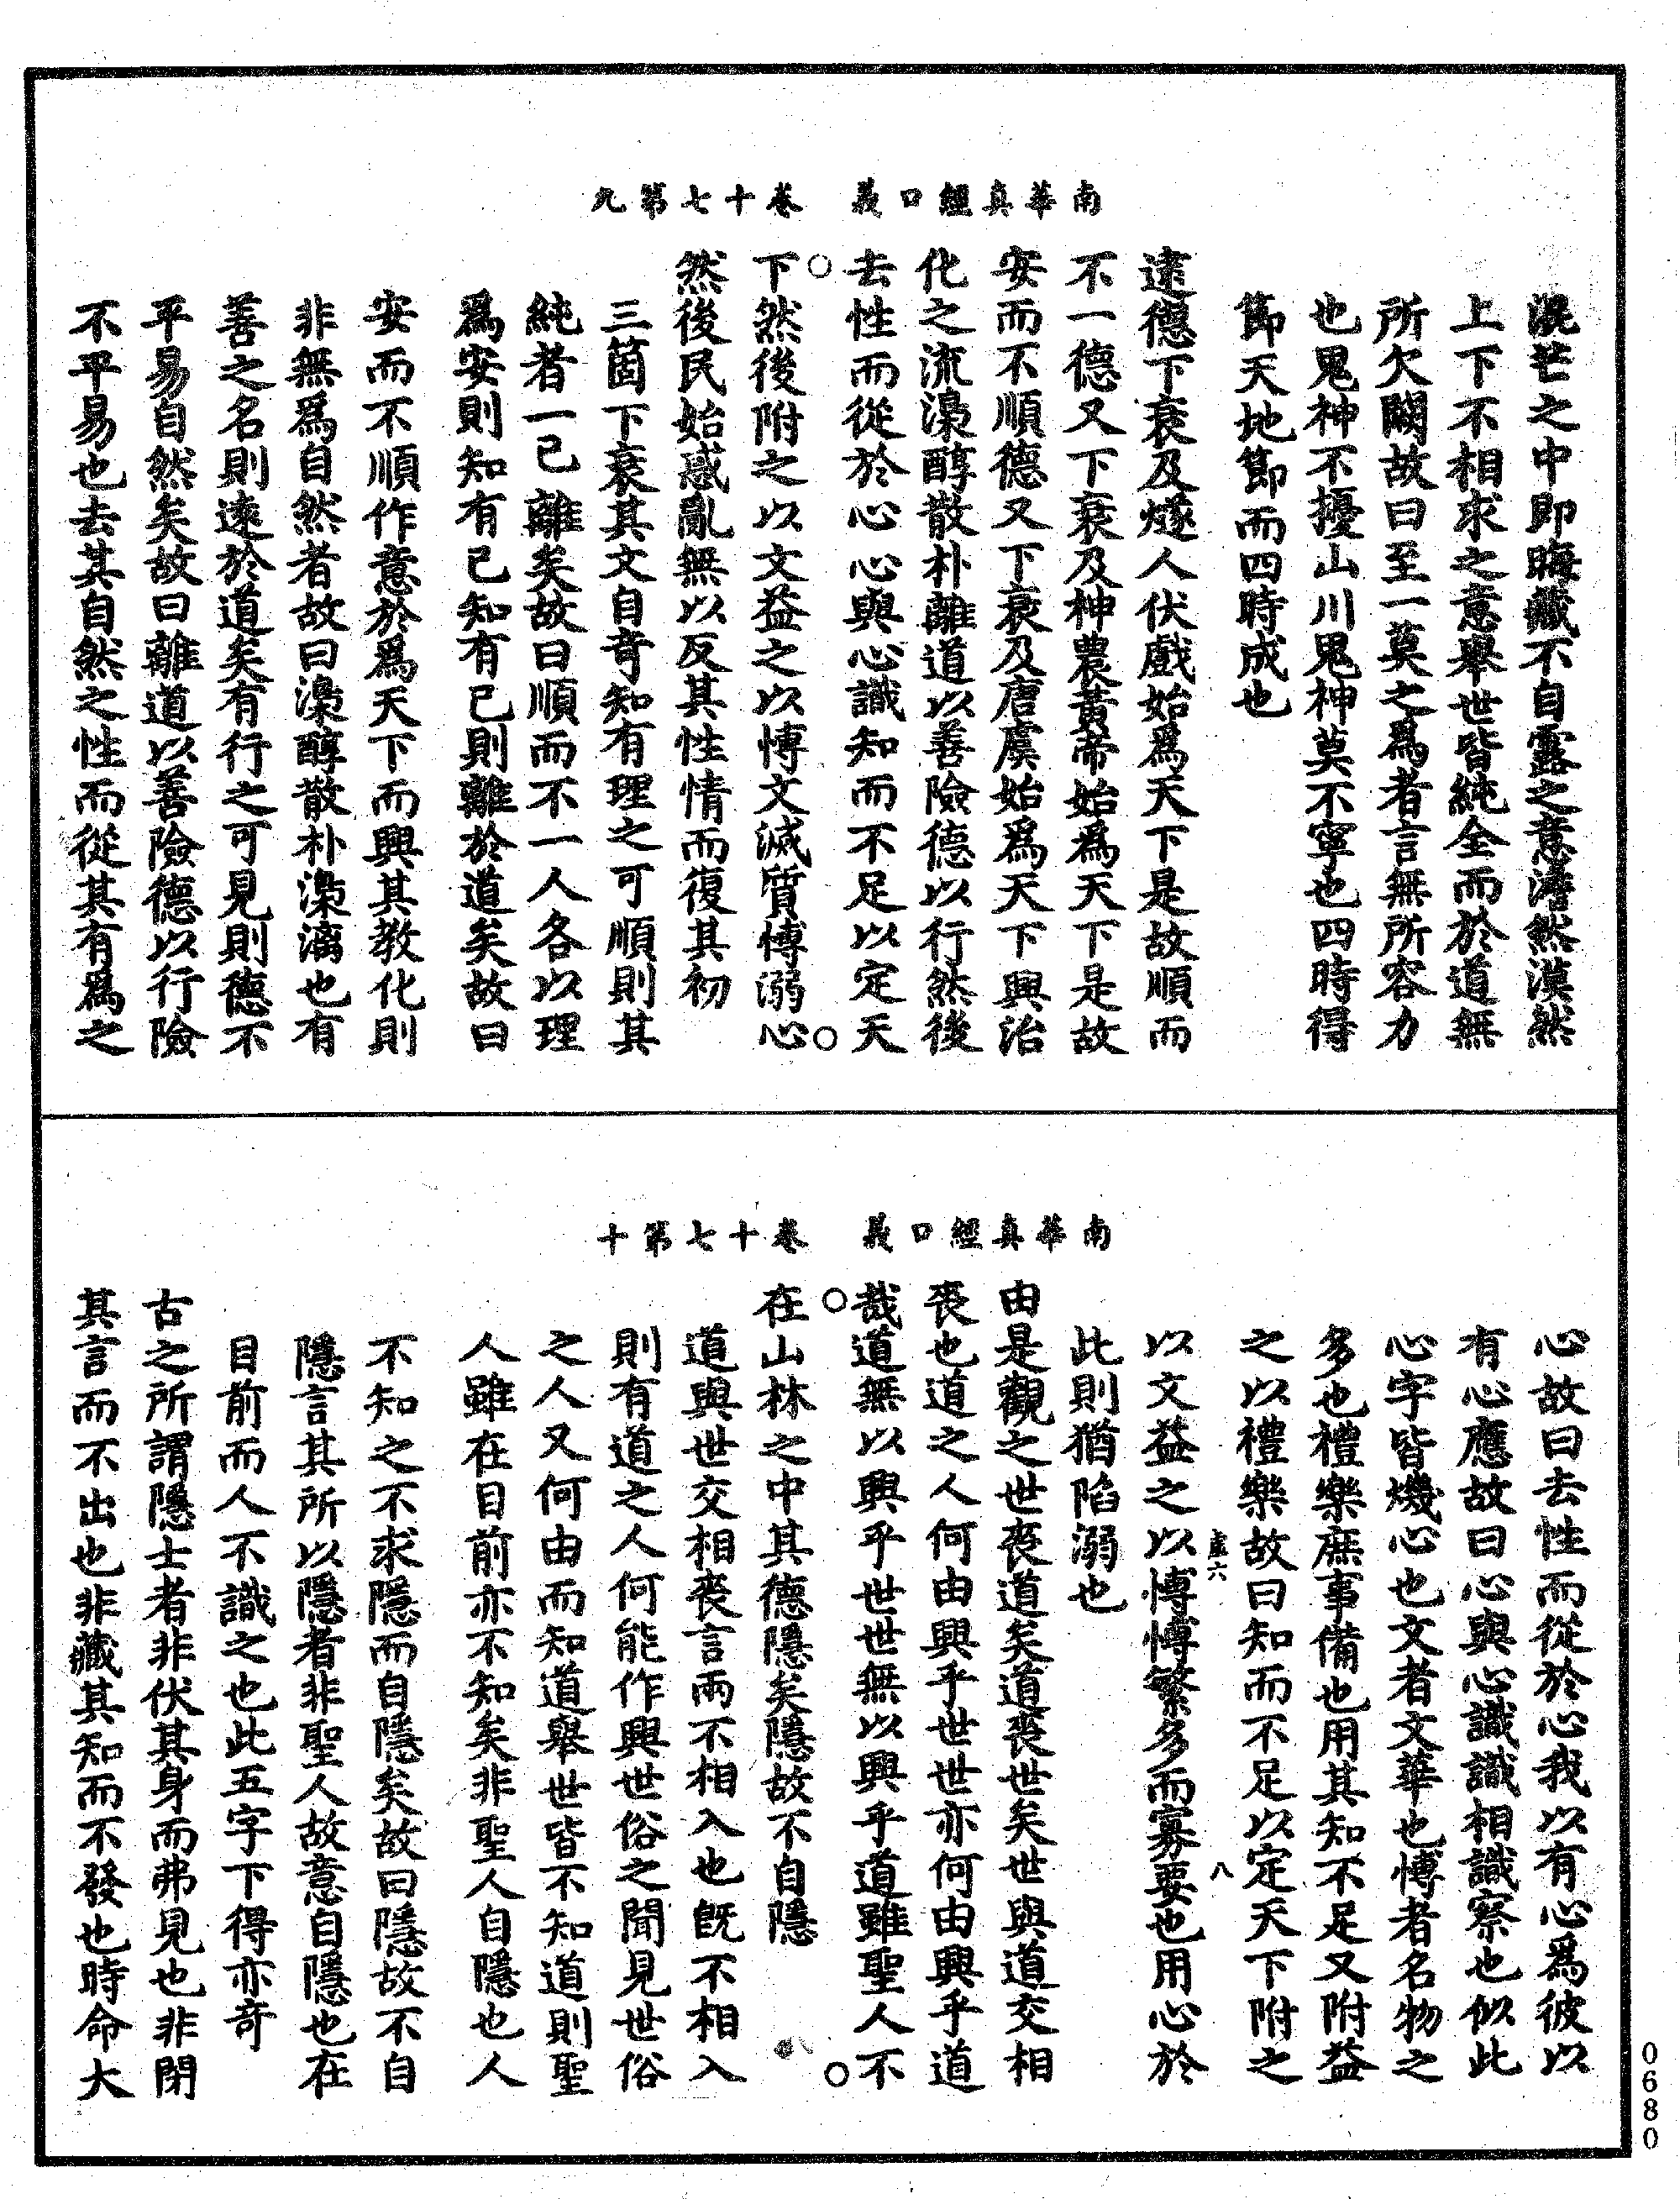 南華真經口義　卷十七第九
混芒之中即晦藏不自露之意澹然漠然
上下不相求之意舉世皆純全而於道無
所欠闕故曰至一莫之爲者言無所容力
也鬼神不擾山川鬼神莫不寧也四時得
節天地節而四時成也
逮德下衰及燧人伏戲始爲天下是故順而
不一德又下衰及神農黃帝始爲天下是故
安而不順德又下衰及唐虞始爲天下興治
化之流澆醇散朴離道以善險德以行然後
去性而從於心心與心識知而不足以定天
下然後附之以文益之以博文滅質博溺心
然後民始惑亂無以反其性情而復其初
三箇下衰其文自奇知有理之可順則其
純者一已離矣故曰順而不一人各以理
爲安則知有己知有己則離於道矣故曰
安而不順作意於爲天下而興其教化則
非無爲自然者故曰澆醇散朴澆漓也有
善之名則遠於道矣有行之可見則德不
平易自然矣故曰離道以善險德以行險
不平易也去其自然之性而從其有爲之
南華真經口義　卷十七第十
心故曰去性而從於心我以有心爲彼以
有心應故曰心與心識識相識察也似此
心字皆機心也文者文華也博者名物之
多也禮樂庶事備也用其知不足又附益
之以禮樂故曰知而不足以定天下附之
虛六　八
以文益之以博博繁多而寡要也用心於
此則猶陷溺也
由是觀之世喪道矣道喪世矣世與道交相
喪也道之人何由興乎世世亦何由興乎道
哉道無以興乎世世無以興乎道雖聖人不
在山林之中其德隱矣隱故不自隱
道與世交相喪言兩不相入也旣不相入
則有道之人何能作興世俗之聞見世俗
之人又何由而知道舉世皆不知道則聖
人雖在目前亦不知矣非聖人自隱也人
不知之不求隱而自隱矣故曰隱故不自
隱言其所以隱者非聖人故意自隱也在
目前而人不識之也此五字下得亦奇
古之所謂隱士者非伏其身而弗見也非閉
其言而不出也非藏其知而不發也時命大
0680